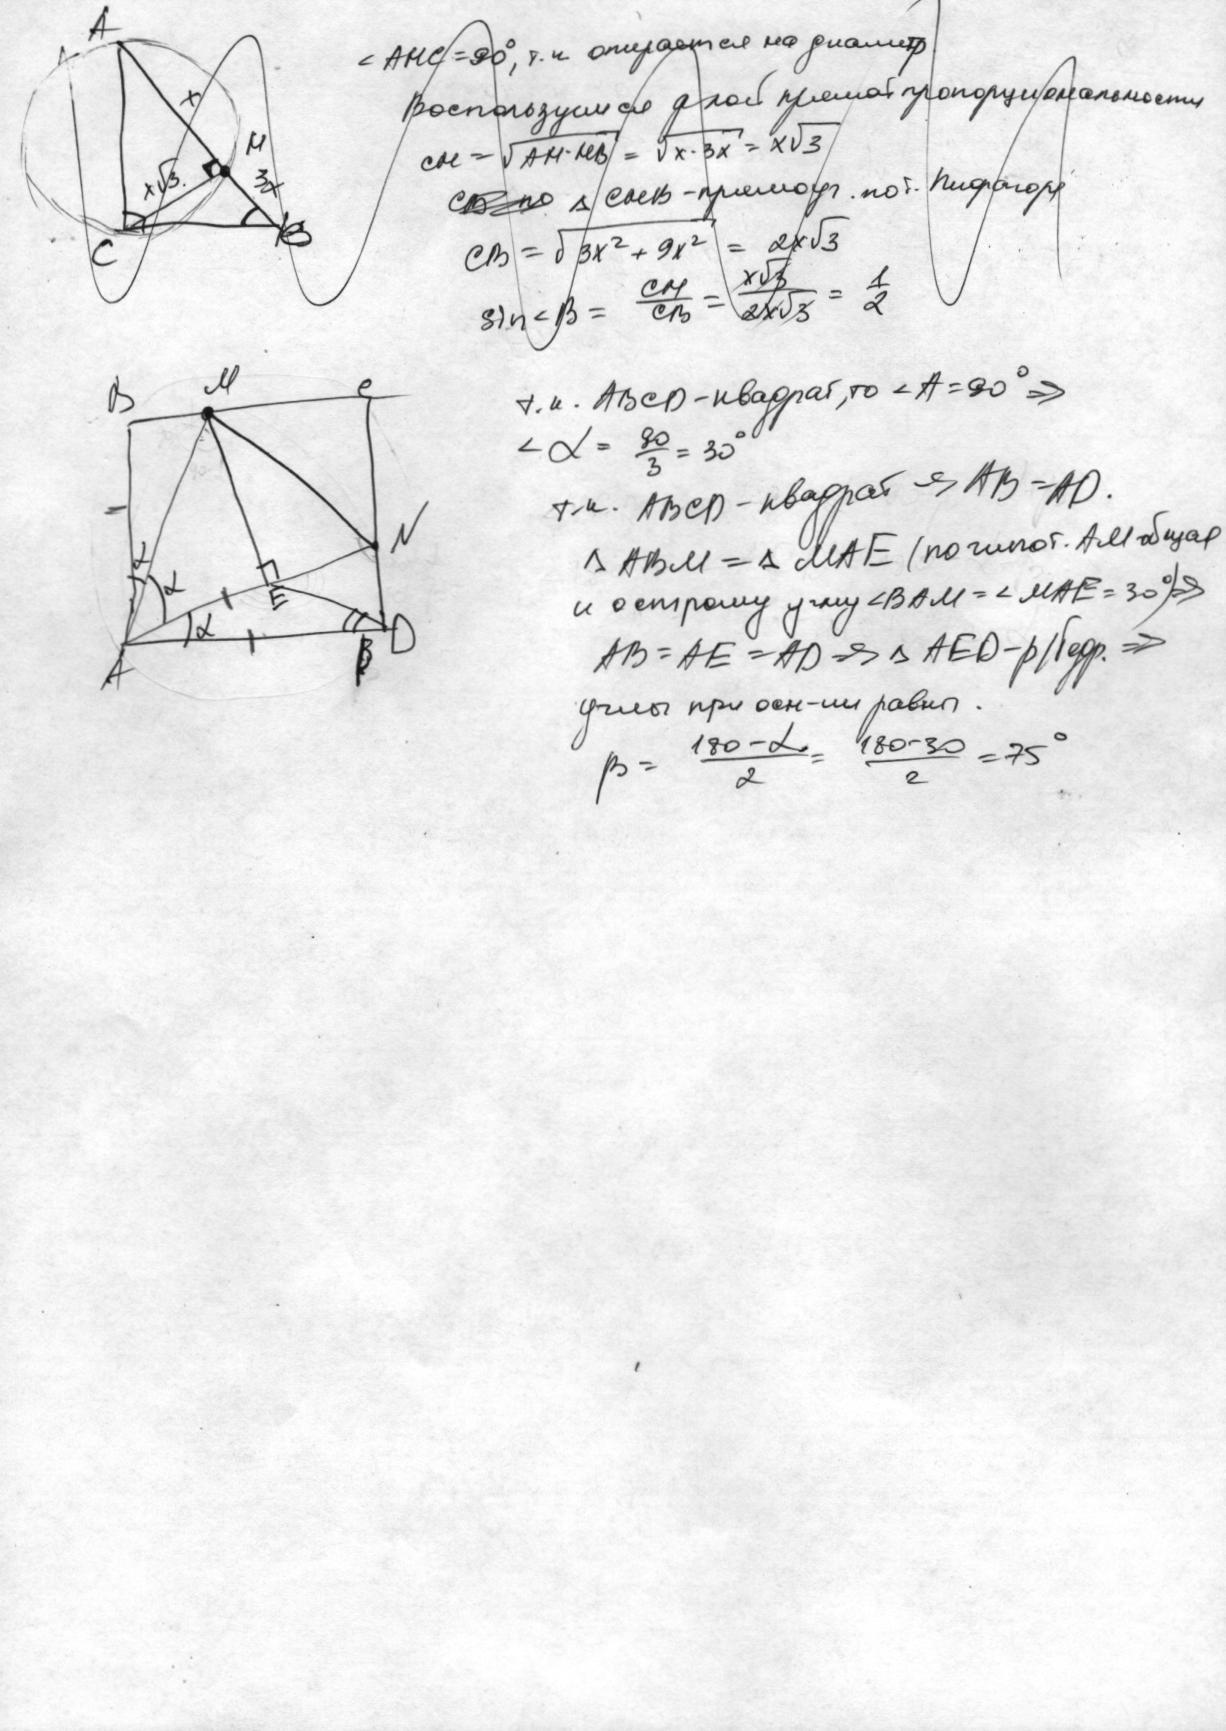 A
x
M
x√3.
3x
C
B
∠AMC=90°, т.к опирается на диаметр
Воспользуемся ф-лой прямой пропорциональности
CM = √AM·MB = √x·3x = x√3
△ CMB - прямоуг. по т. Пифагора
CB = √3x² + 9x² = 2x√3
sin∠B = CM/CB = x√3/2x√3 = 1/2
B M C
α
α
α
E
N
A
β D
т.к. ABCD - квадрат, то ∠A = 90° ⇒
∠α = 90/3 = 30°
т.к. ABCD - квадрат ⇒ AB = AD.
△ ABM = △ MAE (по гипот. AM-общая
и острому углу ∠BAM = ∠MAE = 30°) ⇒
AB = AE = AD ⇒ △ AED - р/бедр. ⇒
углы при осн-ии равны.
β = 180-α/2 = 180-30/2 = 75°